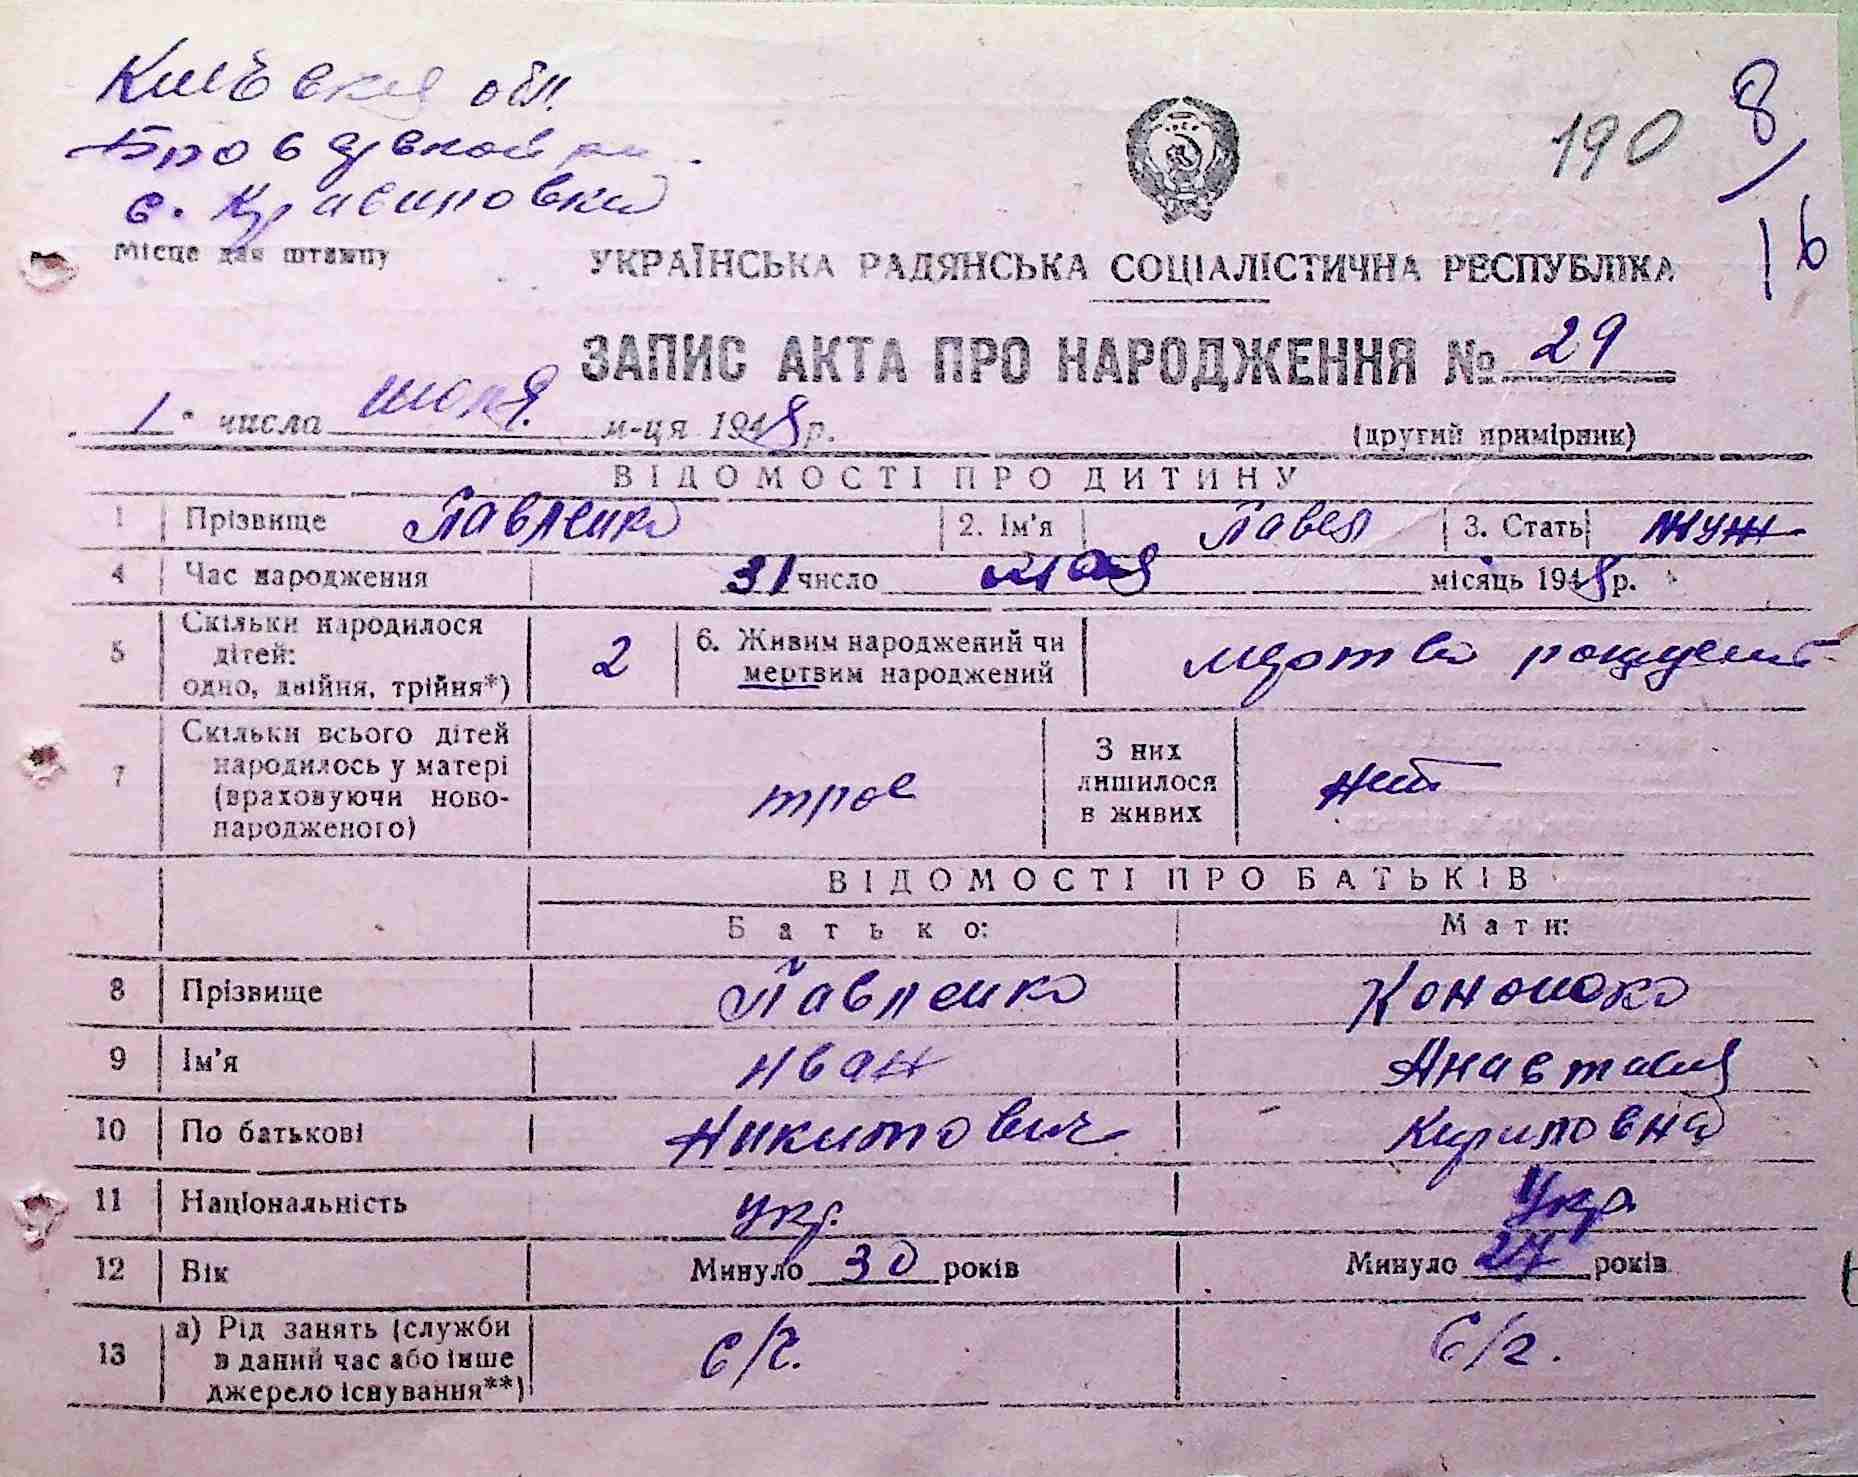 Киевская обл.
Броварской рн.
с. Красиловка
190
8/16
Місце для штампу
УКРАЇНСЬКА РАДЯНСЬКА СОЦІАЛІСТИЧНА РЕСПУБЛІКА
ЗАПИС АКТА ПРО НАРОДЖЕННЯ № 29
1 числа июля м-ця 1948 р.
(другий примірник)
ВІДОМОСТІ ПРО ДИТИНУ
1 Прізвище Павленко 2. Ім'я Павел 3. Стать муж
4 Час народження 31 число мая місяць 1948 р.
5 Скільки народилося дітей: одно, двійня, трійня*) 2 6. Живим народжений чи мертвим народжений мертво
7 Скільки всього дітей народилось у матері (враховуючи новонародженого) трое З них лишилося в живих нет
ВІДОМОСТІ ПРО БАТЬКІВ
Батько: Мати:
8 Прізвище Павленко
9 Ім'я Иван Анастасия
10 По батькові Никитович Кириловна
11 Національність укр. Укр.
12 Вік Минуло 30 років Минуло 27 років
13 а) Рід занять (служби в даний час або інше джерело існування**) с/г. с/г.